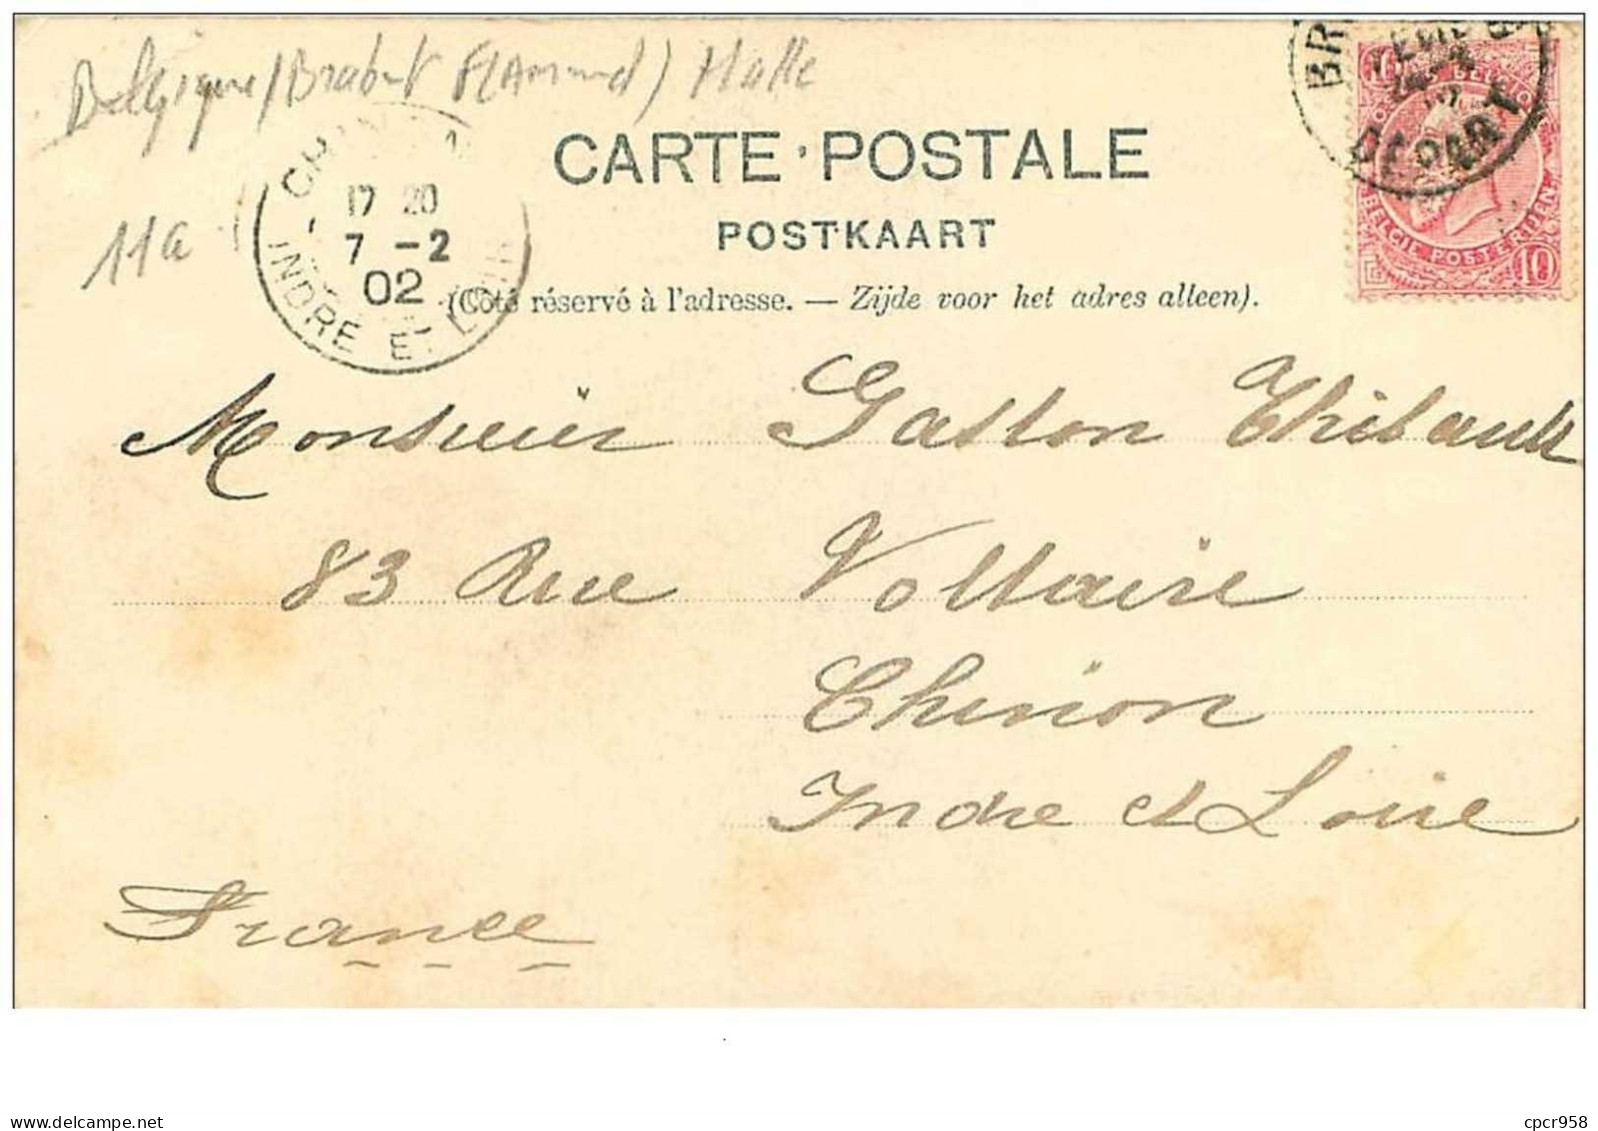 Belgique / Brabant Flamand) Halle
CARTE POSTALE
POSTKAART
(Côté réservé à l'adresse. — Zijde voor het adres alleen).
11a
17 20
7 -2
02
INDRE ET LOIRE
DEPART
BELGIE POSTERIJEN
10
Monsieur Gaston Thibault
83 Rue Voltaire
Chinon
Indre et Loire
France
delcampe.net
cpcr958